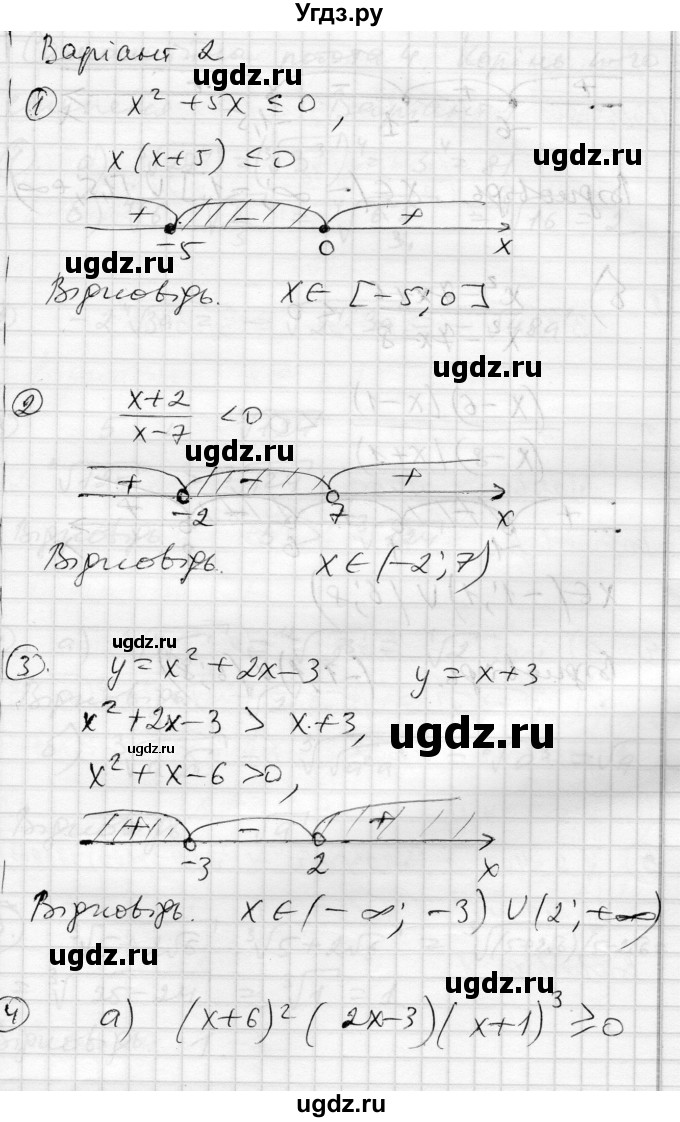 Угдз.ру
Варіант 2
ugdz.ru
① x² + 5x ≤ 0,
x(x+5) ≤ 0
ugdz.ru
+ - +
-5 0 x
ugdz.ru
Відповідь. x ∈ [-5; 0]
ugdz.ru
② (x+2)/(x-7) < 0
ugdz.ru
+ - +
-2 7 x
Відповідь. x ∈ (-2; 7)
ugdz.ru
③. y = x² + 2x - 3 y = x + 3
x² + 2x - 3 > x + 3,
ugdz.ru
ugdz.ru
x² + x - 6 > 0,
+ - +
-3 2 x
Відповідь. x ∈ (-∞; -3) ∪ (2; +∞)
ugdz.ru
ugdz.ru
④ а) (x+6)² (2x-3)(x+1)³ ≥ 0
ugdz.ru